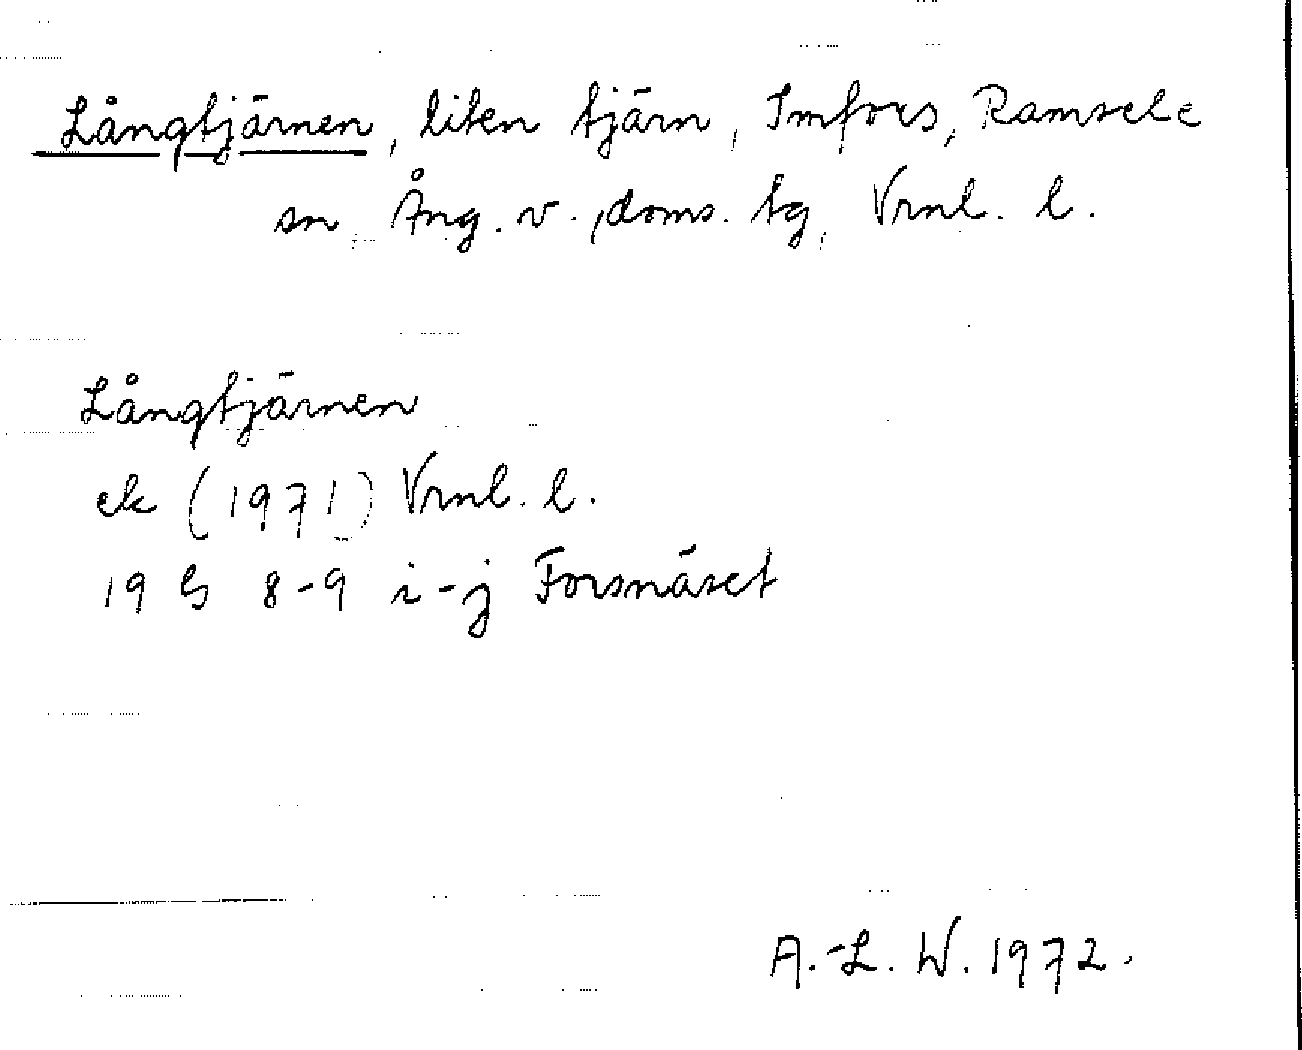 Långtjärnen, liten tjärn, Imfors, Ramsele
sn, Ång. v., doms. tg, Vrnl. l.
Långtjärnen
ek (1971) Vrnl. l.
19 G 8-9 i-j Forsnäset
A.-L. W. 1972.